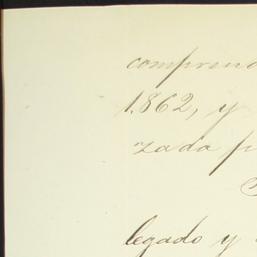 comprend
1.862, y
zada p
legado y